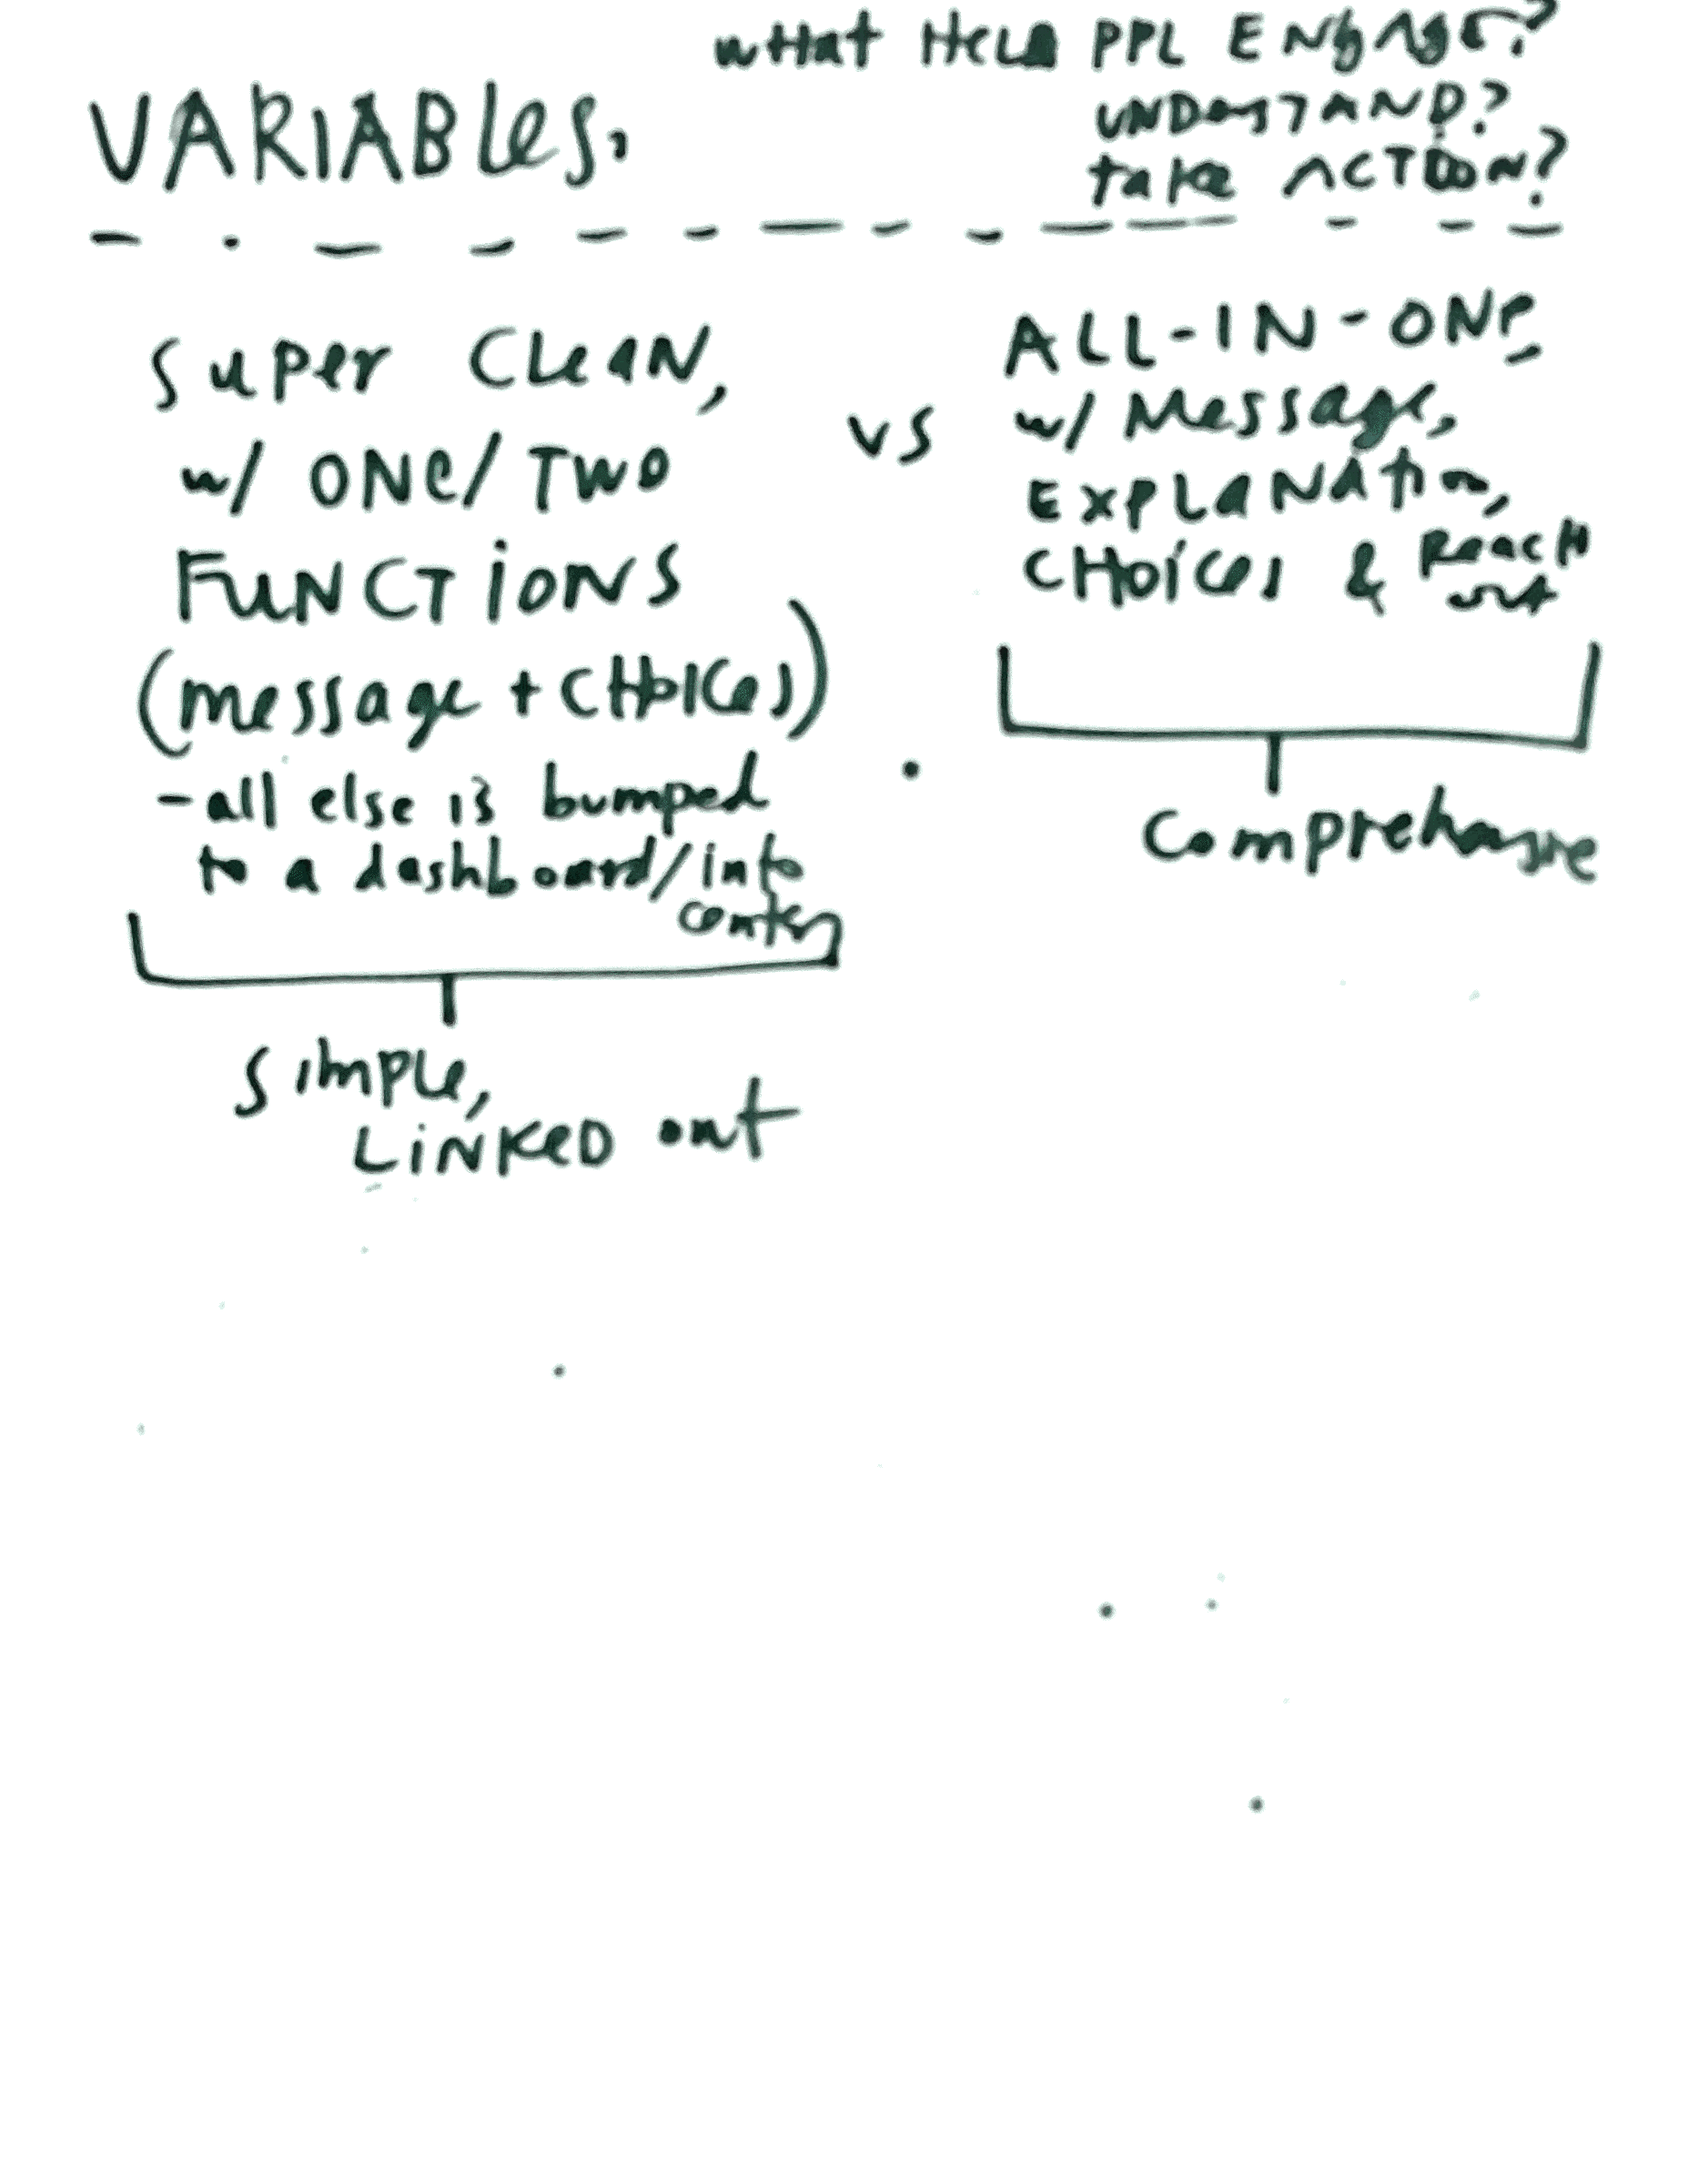 WHAT HELPS PPL ENGAGE?
UNDERSTAND?
TAKE ACTION?
VARIABLES.
SUPER CLEAN,
w/ ONE/TWO
FUNCTIONS
(message + CHOICES)
- all else is bumped
to a dashboard/info
center
SIMPLE,
LINKED out
vs
ALL-IN-ONE,
w/ Message,
EXPLANAtion,
CHOICES & REACH
out
Comprehensive